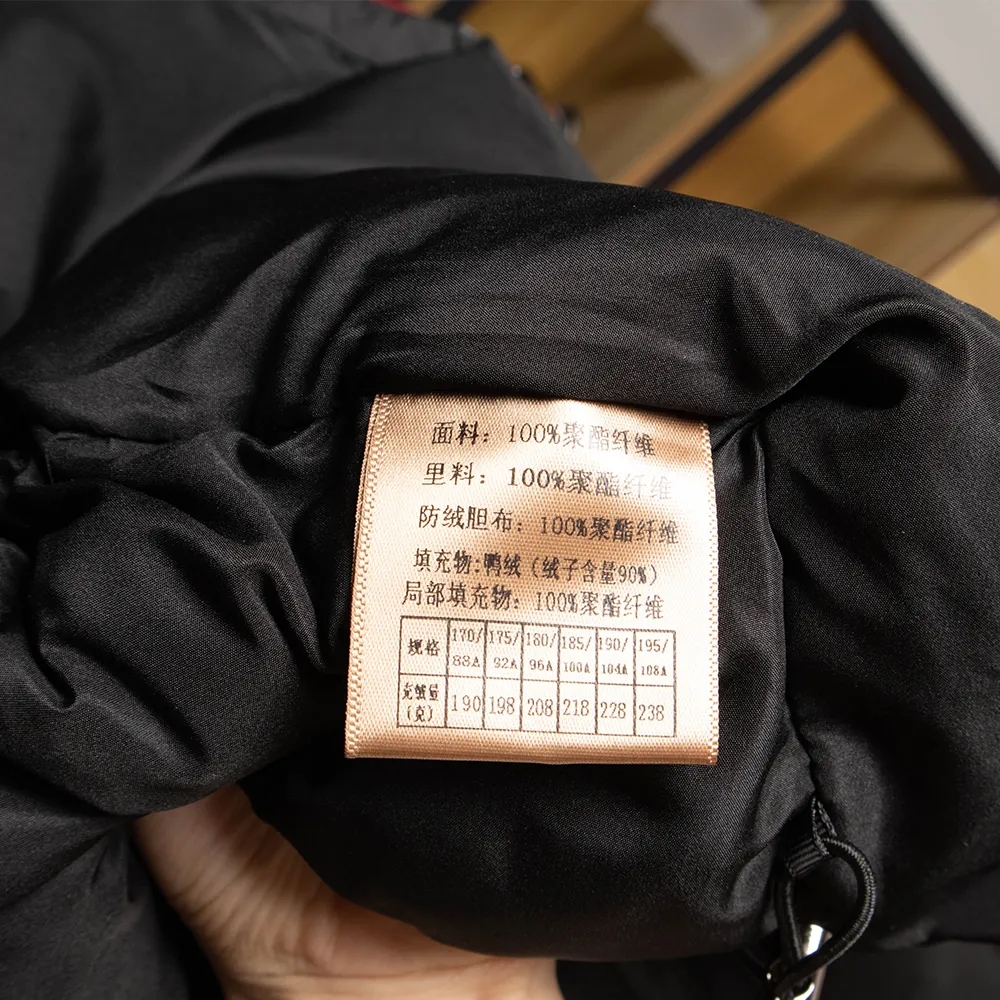 面料：100%聚酯纤维
里料：100%聚酯纤维
防绒胆布：100%聚酯纤维
填充物:鸭绒（绒子含量90%）
局部填充物：100%聚酯纤维
规格 170/88A 175/92A 180/96A 185/100A 190/104A 195/108A
充绒量(克) 190 198 208 218 228 238